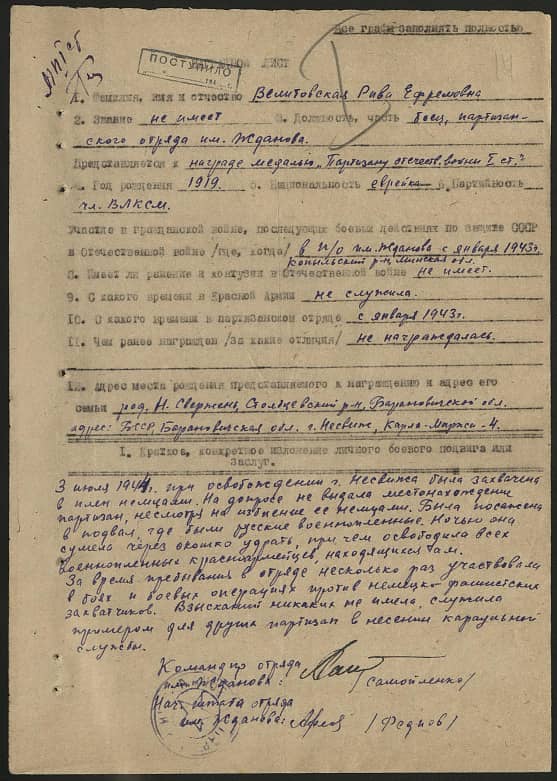 Все графы заполнять полностью
ПОСТУПИЛО
ЛИСТ
1. Фамилия, имя и отчество Велитовская Рива Ефремовна
2. Звание не имеет 3. Должность, часть боец, партизан-
ского отряда им. Жданова.
Представляется к награде медалью „Партизану отечеств. войны I ст."
4. Год рождения 1919. 5. Национальность еврейка 6. Партийность
чл. ВЛКСМ.
Участие в гражданской войне, последующих боевых действиях по защите СССР
и Отечественной войне /где, когда/ в п/о им. Жданова с января 1943г.
Копыльский р-н, Минская обл.
8. Имеет ли ранение и контузии в Отечественной войне не имеет.
9. С какого времени в Красной Армии не служила.
10. С какого времени в партизанском отряде с января 1943г.
11. Чем ранее награжден /за какие отличия/ не награждалась.
12. Адрес места рождения представляемого к награждению и адрес его
семьи род. Н. Свержень, Столбцевский р-н, Барановичской обл.
адрес: БССР, Барановичская обл. г. Несвиж, Карла-Маркса-4.
I. Краткое, конкретное изложение личного боевого подвига или
заслуг.
3 июля 1944г. при освобождении г. Несвижа была захвачена
в плен немцами. На допросе не выдала местонахождении
партизан, несмотря на избиение ее немцами. Была посажена
в подвал, где были русские военнопленные. Ночью она
сумела через окошко удрать, при чем освободила всех
военнопленных красноармейцев, находящихся там.
За время пребывания в отряде несколько раз участвовала
в боях и боевых операциях против немецко-фашистских
захватчиков. Взысканий никаких не имела, служила
примером для других партизан в несении караульной
службы.
Командир отряда
им. Жданова: /Самойленко/
Нач. штаба отряда
им. Жданова: /Феднов/